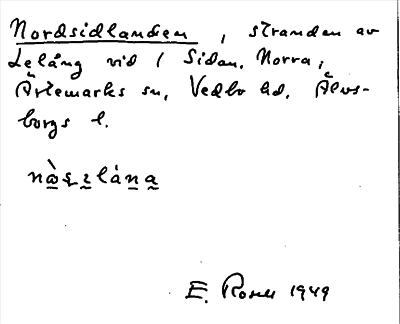 Nordsidlanden, stranden av
Lelång vid / Sidan, Norra,
Ärtemarks sn, Vedbo hd, Älvs-
borgs l.
E. Rosell 1949